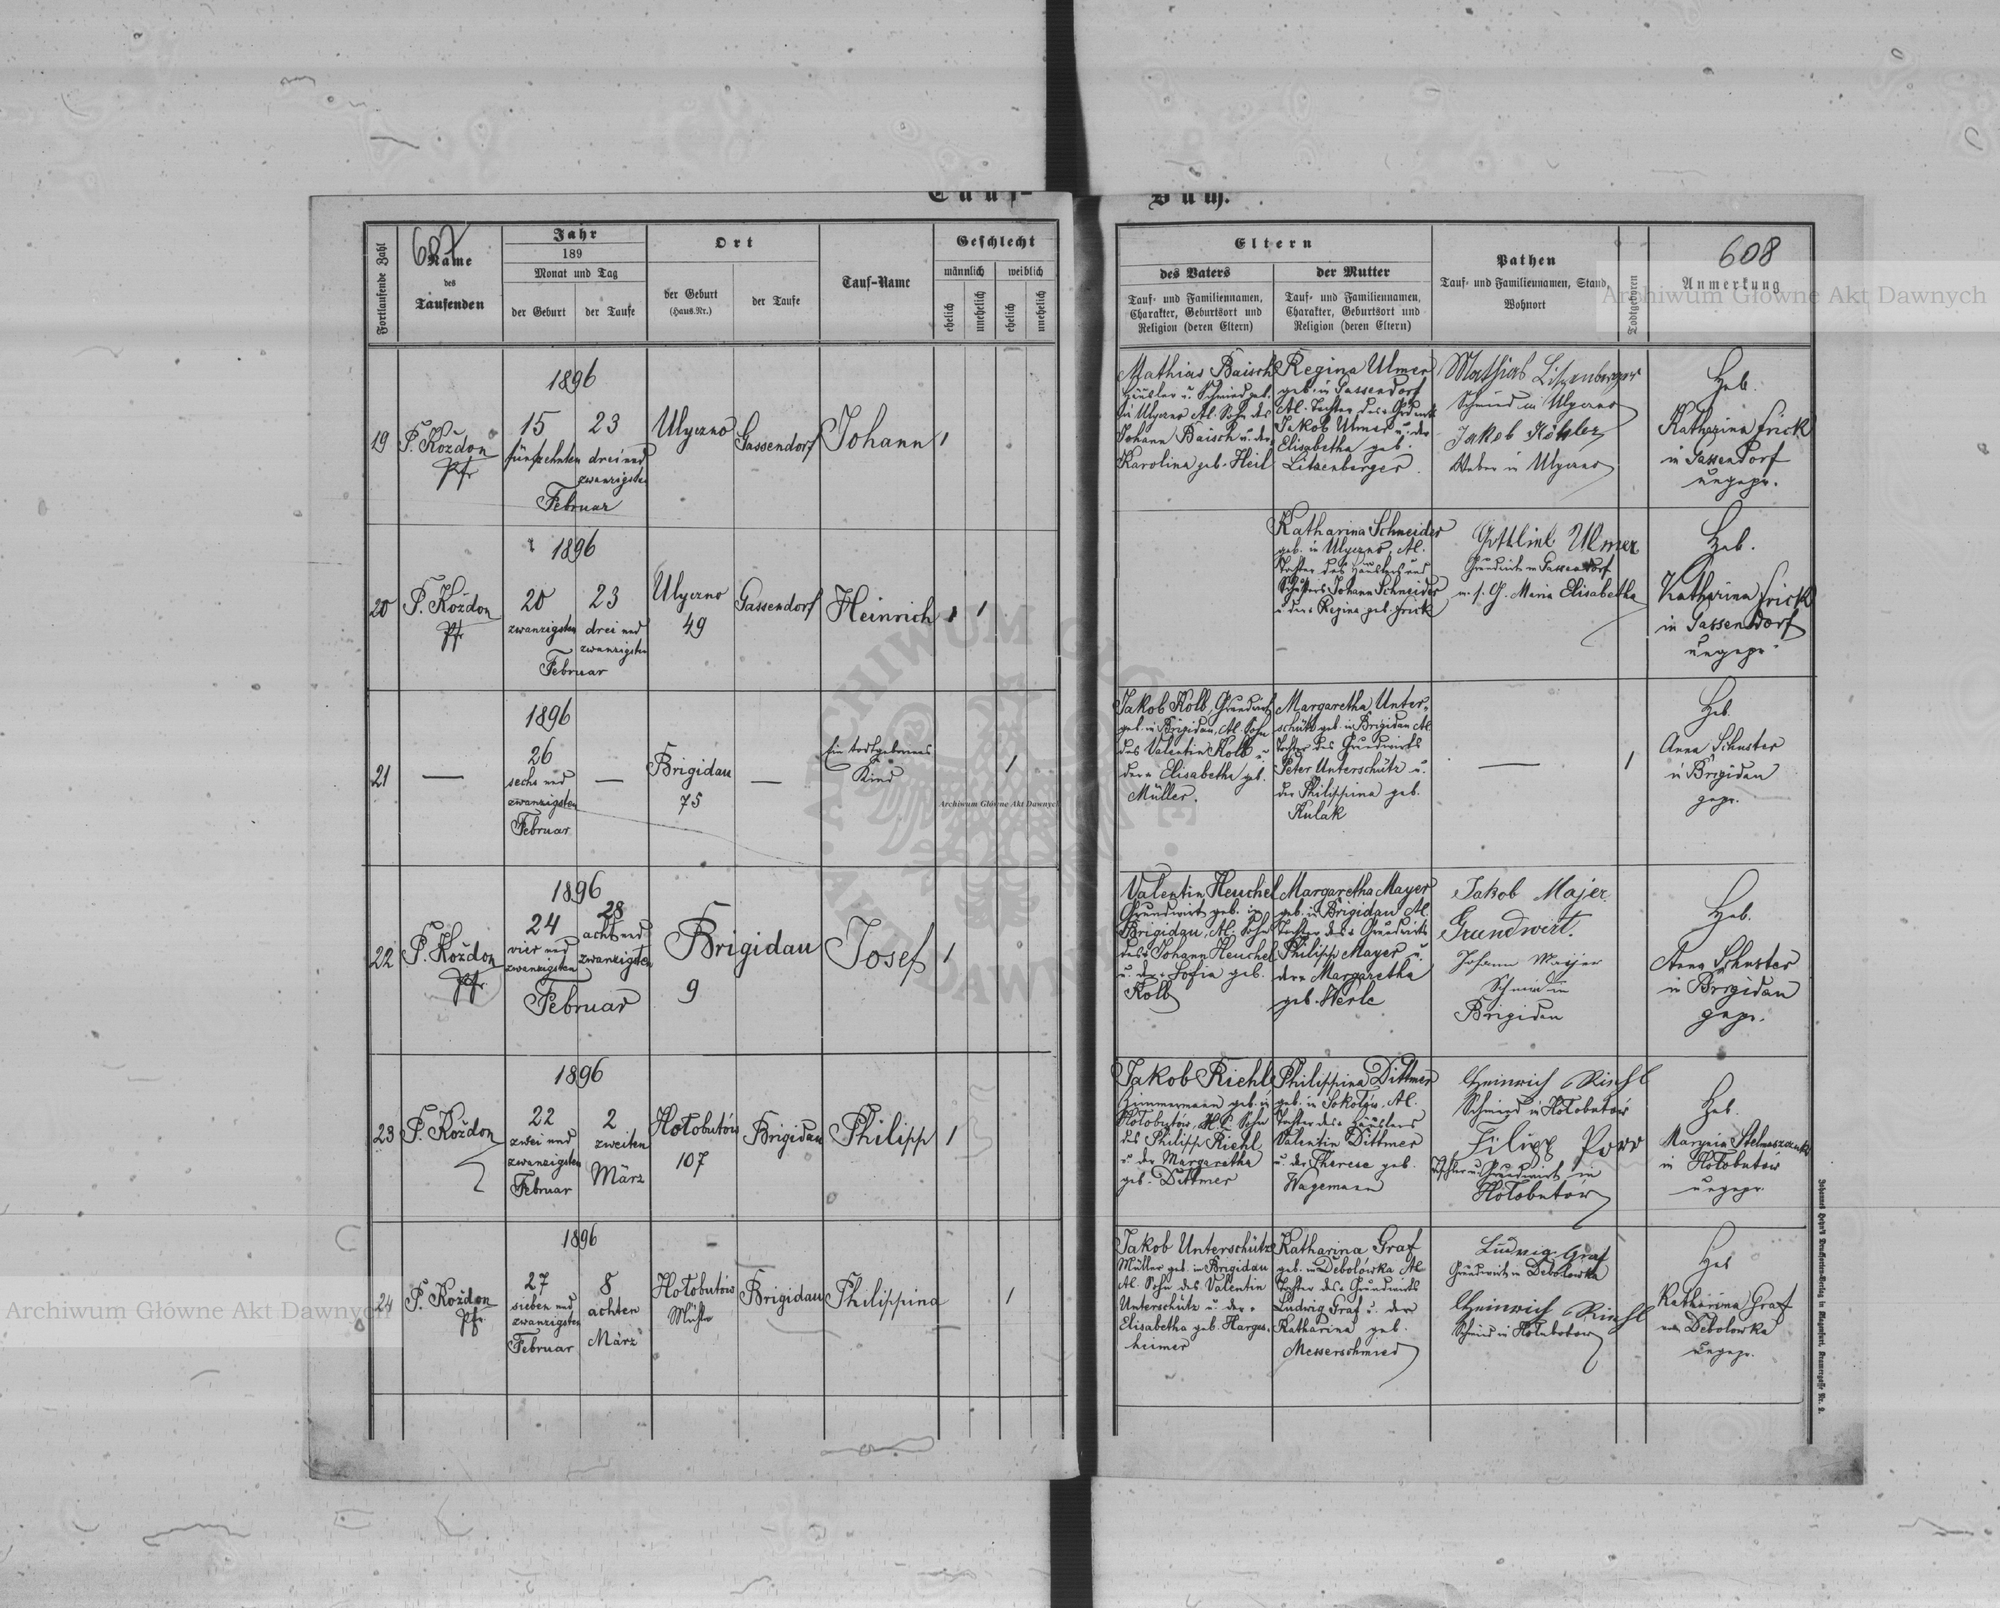 Tauf-
Buch.
Fortlaufende Zahl
607
Name
des
Taufenden
Jahr
189
Monat und Tag
der Geburt
der Taufe
Ort
der Geburt
(Haus.Nr.)
der Taufe
Tauf-Name
Geschlecht
männlich
weiblich
ehelich
unehelich
ehelich
unehelich
Eltern
des Vaters
Tauf- und Familiennamen,
Charakter, Geburtsort und
Religion (deren Eltern)
der Mutter
Tauf- und Familiennamen,
Charakter, Geburtsort und
Religion (deren Eltern)
Pathen
Tauf- und Familiennamen, Stand,
Wohnort
Todtgeboren
608
Anmerkung
19
P. Koždon
Pfr
1896
15
fünfzehnten
23
drei und
zwanzigsten
Februar
Ulyczno
Gassendorf
Johann
1
Mathias Baisch
Häusler u. Schmied geb.
in Ulyczno Al. Sohn des
Johann Baisch u. der
Karolina geb. Heil
Regina Ulmer
geb. in Gassendorf
Al. Tochter des Grdwirts
Jakob Ulmer u. der
Elisabetha geb.
Litzenberger
Mathias Litzenberger
Schmied in Ulyczno
Jakob Köhler
Weber in Ulyczno
Heb.
Katharina Frick
in Gassendorf
ungepr.
20
P. Koždon
Pfr
1896
20
zwanzigsten
23
drei und
zwanzigsten
Februar
Ulyczno
49
Gassendorf
Heinrich
1
Katharina Schneider
geb. in Ulyczno, Al.
Tochter des Häuslers und
Schusters Johann Schneider
u. der Regina geb. Frick
Gottlieb Ulmer
Grundwirt in Gassendorf
m. s. G. Maria Elisabetha
Heb.
Katharina Frick
in Gassendorf
ungepr.
21
—
1896
26
sechs und
zwanzigsten
Februar
—
Brigidau
75
—
Ein todtgeborenes
Kind
1
Jakob Kolb, Grundwirt
geb. in Brigidau, Al. Sohn
des Valentin Kolb u.
der Elisabetha geb.
Müller.
Margaretha Unter-
schütz geb. in Brigidau Al.
Tochter des Grundwirts
Peter Unterschütz u.
der Philippina geb.
Kulak
—
1
Heb.
Anna Schuster
in Brigidau
gepr.
22
P. Koždon
Pfr
1896
24
vier und
zwanzigsten
28
acht und
zwanzigsten
Februar
Brigidau
9
Josef
1
Valentin Heuchel
Grundwirt geb. in
Brigidau, Al. Sohn
des Johann Heuchel
u. der Sofia geb.
Kolb
Margaretha Mayer
geb. in Brigidau Al.
Tochter des Grundwirts
Philipp Mayer u.
der Margaretha
geb. Werle
Jakob Majer
Grundwirt.
Johann Majer
Schmied in
Brigidau
Heb.
Anna Schuster
in Brigidau
gepr.
23
P. Koždon
1896
22
zwei und
zwanzigsten
Februar
2
zweiten
März
Hołobutów
107
Brigidau
Philipp
1
Jakob Riehl
Zimmermann geb. in
Hołobutów, H.C. Sohn
des Philipp Riehl
u. der Margaretha
geb. Dittmer
Philippina Dittmer
geb. in Sokołów, Al.
Tochter des Häuslers
Valentin Dittmer
u. der Therese geb.
Wagemann
Heinrich Riehl
Schmied in Hołobutów
Filipp
Grundwirt in
Hołobutów
Heb.
in Hołobutów
ungepr.
24
P. Koždon
Pfr.
1896
27
sieben und
zwanzigsten
Februar
8
achten
März
Hołobutów
Mühle
Brigidau
Philippina
1
Jakob Unterschütz
Müller geb. in Brigidau
Al. Sohn des Valentin
Unterschütz u. der
Elisabetha geb. Harges-
heimer
Katharina Graf
geb. in Debolówka Al
Tochter des Grundwirts
Ludwig Graf u. der
Katharina geb.
Messerschmied
Ludwig Graf
Grundwirt in Debolowka
Heinrich Riehl
Schmied in Hołobutow
Heb
Katharina Graf
Debolowka
ungepr.
Archiwum Główne Akt Dawnych
Archiwum Główne Akt Dawnych
Archiwum Główne Akt Dawnych